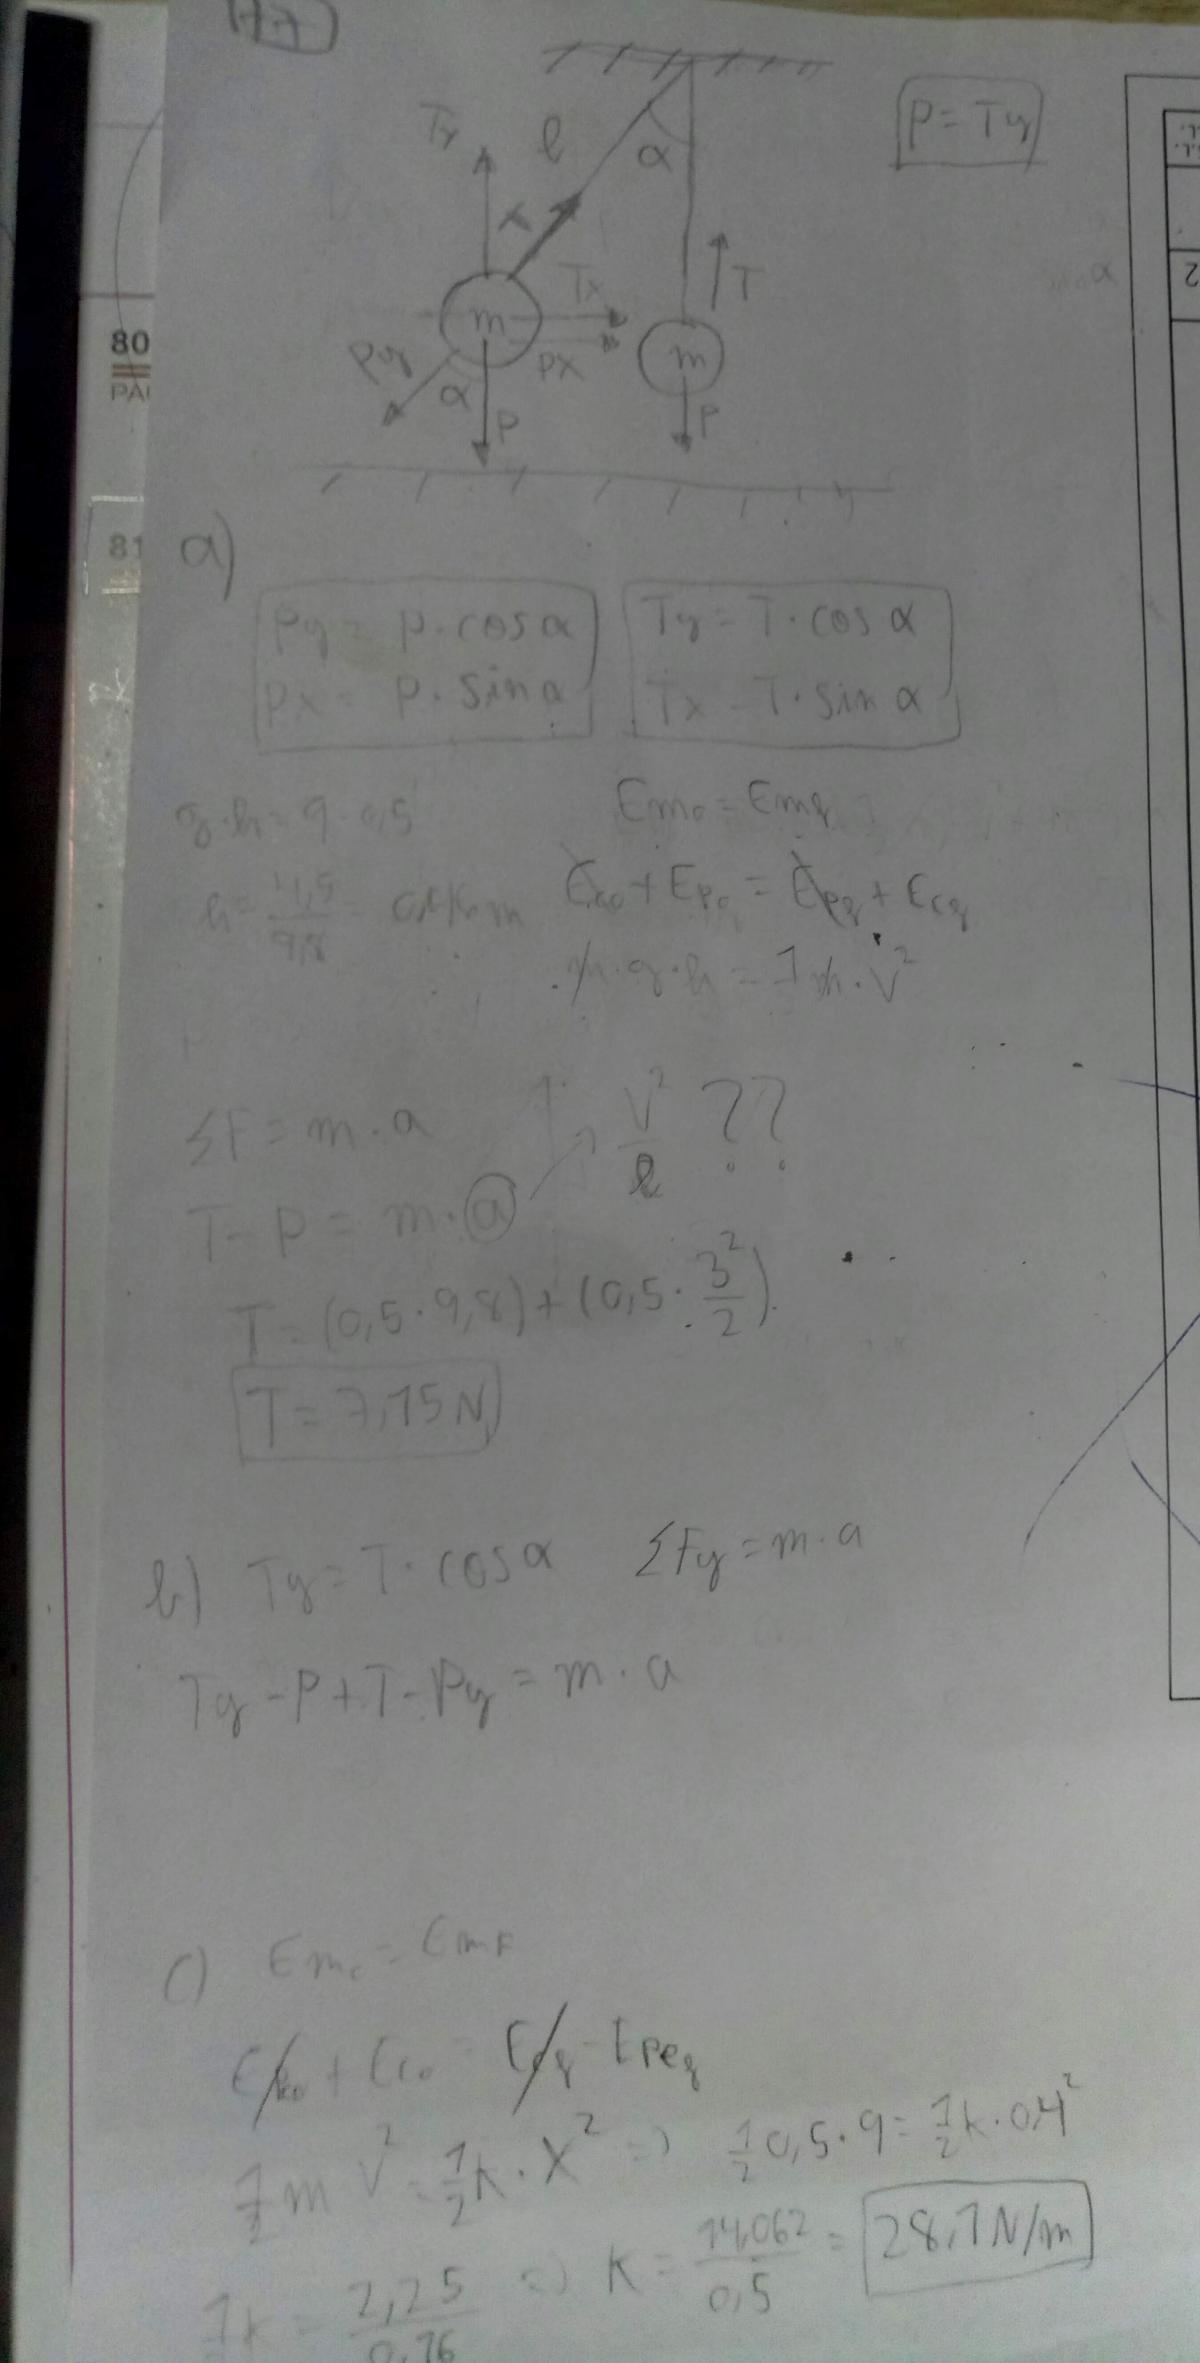 77
P = Ty
Ty
l
α
T
Tx
T
m
Px
m
Py
α
P
P
80
PÁ
81
2
a)
Py = P · cos α
Px = P · sin α
Ty = T · cos α
Tx = T · sin α
g·h = 9 · 0,5
Emo = Emf
h = 4,5/9,8 = 0,46 m
Eco + Epo = Epf + Ecf
m·g·h = 1 m·v²
ΣF = m · a
v²/l ??
T - P = m · a
T = (0,5 · 9,8) + (0,5 · 3²/2)
T = 7,15 N
b) Ty = T · cos α
ΣFy = m · a
Ty - P + T - Py = m · a
c) Emo = EmF
+ Eco = - Epef
1/2 m v² = 1/2 k · x² => 1/2 0,5 · 9 = 1/2 k · 0,4²
1 k = 2,25/0,16 => k = 14,062/0,5 = 28,1 N/m